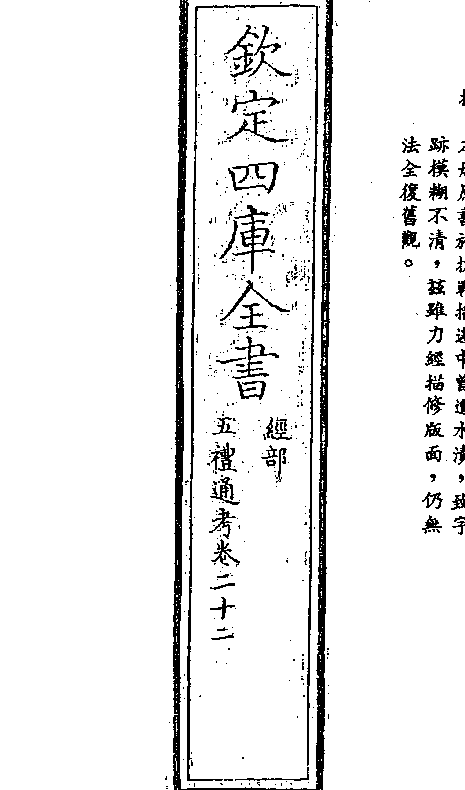 戰搶運中曾遭水漬，致字
跡模糊不清，茲雖力經描修版面，仍無
法全復舊觀。
欽定四庫全書
經部
五禮通考卷二十二